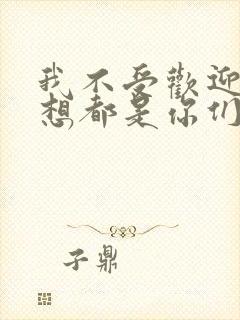 我不受歡迎
想都是你们
子鼎